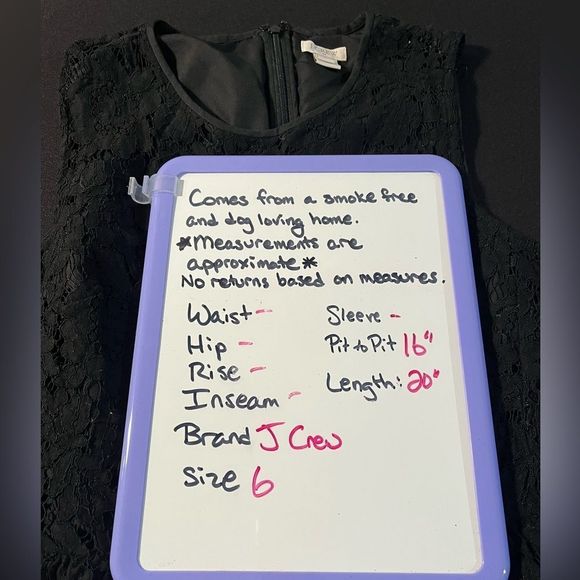 Comes from a smoke free
and dog loving home.
*Measurements are
approximate*
No returns based on measures.
Waist -
Hip -
Rise -
Inseam -
Sleeve -
Pit to Pit 16"
Length: 20"
Brand J Crew
Size 6